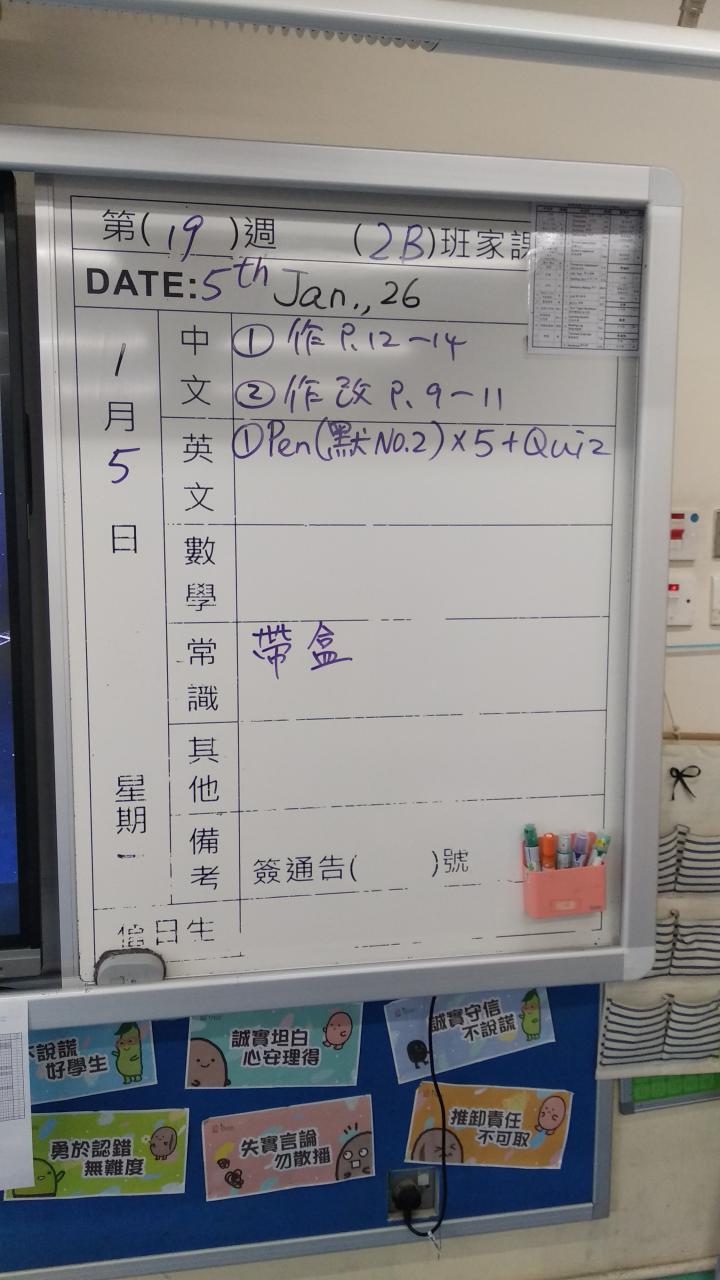 第( 19 )週 (2B)班家課
DATE: 5th Jan., 26
1月5日 星期一
中文
① 作 P.12-14
② 作 改 P.9-11
英文
① Pen(默 NO.2) x 5 + Quiz
數學
常識
帶盒
其他
備考
簽通告( )號
值日生
不說謊
好學生
誠實坦白
心安理得
誠實守信
不說謊
勇於認錯
無難度
失實言論
勿散播
推卸責任
不可取